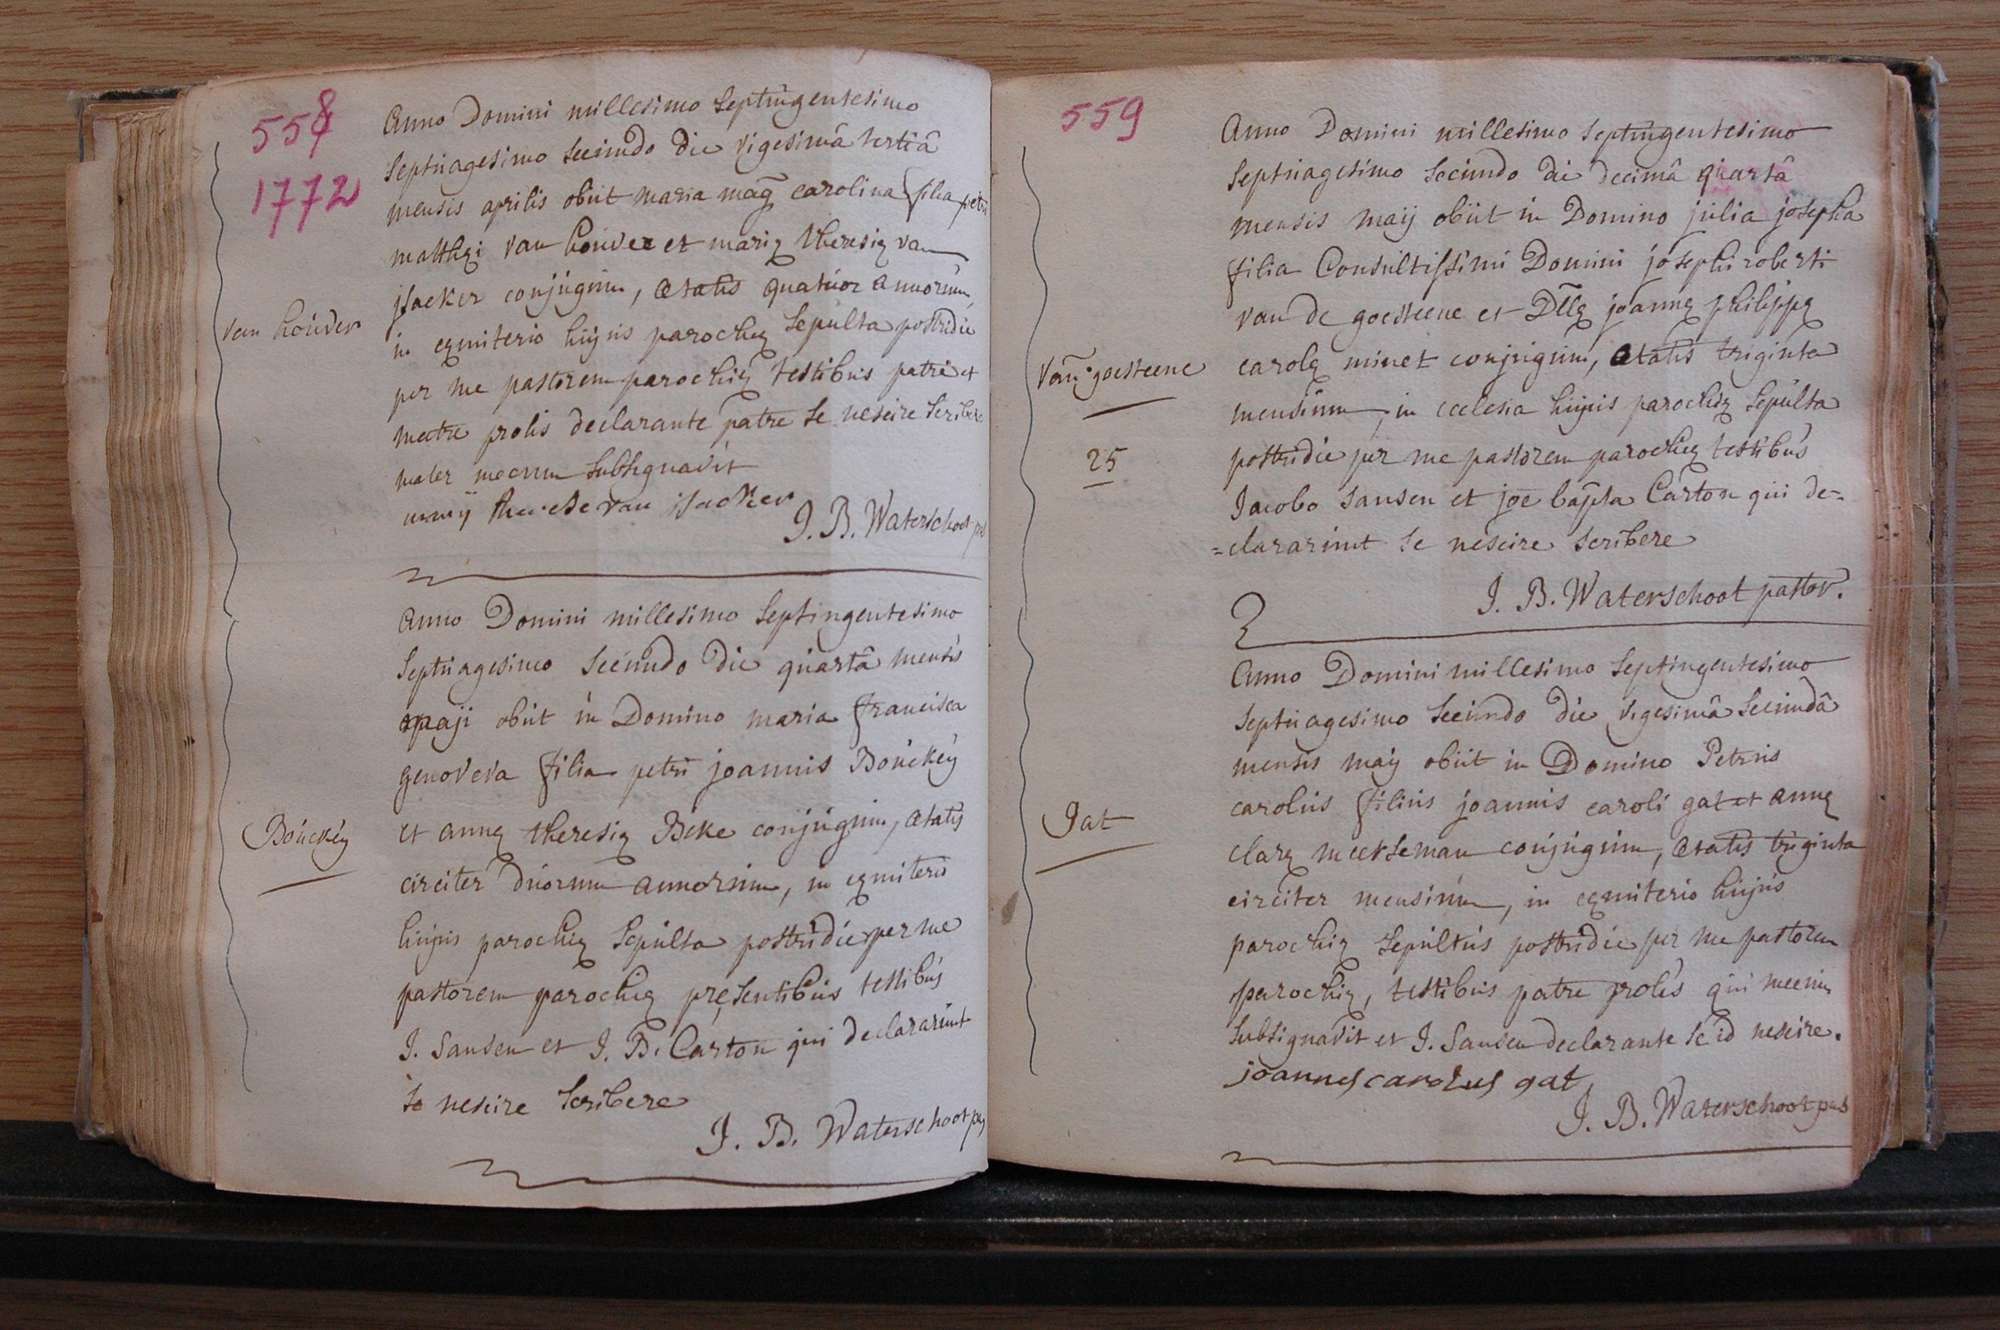 558
1772
Anno Domini millesimo Septingentesimo
Septuagesimo Secundo die vigesimâ tertiâ
mensis aprilis obiit maria mag. carolina filia petri
matthęi van houver et marię theresię van
jsacker conjugum, ætatis quatuor annorum,
van houver
in cęmiterio hujus parochię sepulta postridie
per me pastorem parochię testibus patre et
matre prolis declarante patre se nescire scribere
mater mecum subsignavit
therese van jsacker
J. B. Waterschoot
Anno Domini millesimo Septingentesimo
Septuagesimo Secundo die quartâ mensis
maji obiit in Domino maria francisca
genoveva filia petri joannis Bouckéy
Bouckéy
et annę theresię Beke conjugum, ætatis
circiter duorum annorum, in cęmiterio
hujus parochię sepulta postridie per me
pastorem parochię pręsentibus testibus
J. Sansen et J. B. Carton qui declararunt
se nescire scribere
J. B. Waterschoot
559
Anno Domini millesimo Septingentesimo
Septuagesimo Secundo die decimâ quartâ
mensis maij obiit in Domino julia josepha
filia Consultissimi Domini josephi roberti
van de goesteene et Dllę joannę philippę
van goesteene
carolę minet conjugum, ætatis triginta
mensium, in ecclesia hujus parochię sepulta
25
postridie per me pastorem parochię testibus
Jacobo Sansen et joe bapta Carton qui de-
=clararunt se nescire scribere
J. B. Waterschoot pastor.
Anno Domini millesimo Septingentesimo
Septuagesimo Secundo die vigesimâ Secundâ
mensis maij obiit in Domino Petrus
carolus filius joannis caroli gat et annę
gat
clarę meerseman conjugum, ætatis triginta
circiter mensium, in cęmiterio hujus
parochię sepultus postridie per me pastorem
parochię, testibus patre prolis qui mecum
subsignavit et J. Sansen declarante se id nescire.
joannes carolus gat
J. B. Waterschoot